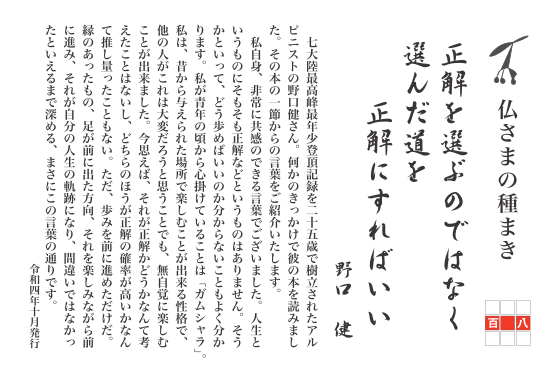 仏さまの種まき
百八
正解を選ぶのではなく
選んだ道を
正解にすればいい
野口 健
七大陸最高峰最年少登頂記録を二十五歳で樹立されたアル
ピニストの野口健さん。何かのきっかけで彼の本を読みまし
た。その本の一節からの言葉をご紹介いたします。
私自身、非常に共感のできる言葉でございました。人生と
いうものにそもそも正解などというものはありません。そう
かといって、どう歩めばいいのか分からないこともよく分か
ります。私が青年の頃から心掛けていることは「ガムシャラ」。
私は、昔から与えられた場所で楽しむことが出来る性格で、
他の人がこれは大変だろうと思うことでも、無自覚に楽しむ
ことが出来ました。今思えば、それが正解かどうかなんて考
えたことはないし、どちらのほうが正解の確率が高いかなん
て推し量ったこともない。ただ、歩みを前に進めただけだ。
縁のあったもの、足が前に出た方向、それを楽しみながら前
に進み、それが自分の人生の軌跡になり、間違いではなかっ
たといえるまで深める、まさにこの言葉の通りです。
令和四年十月発行